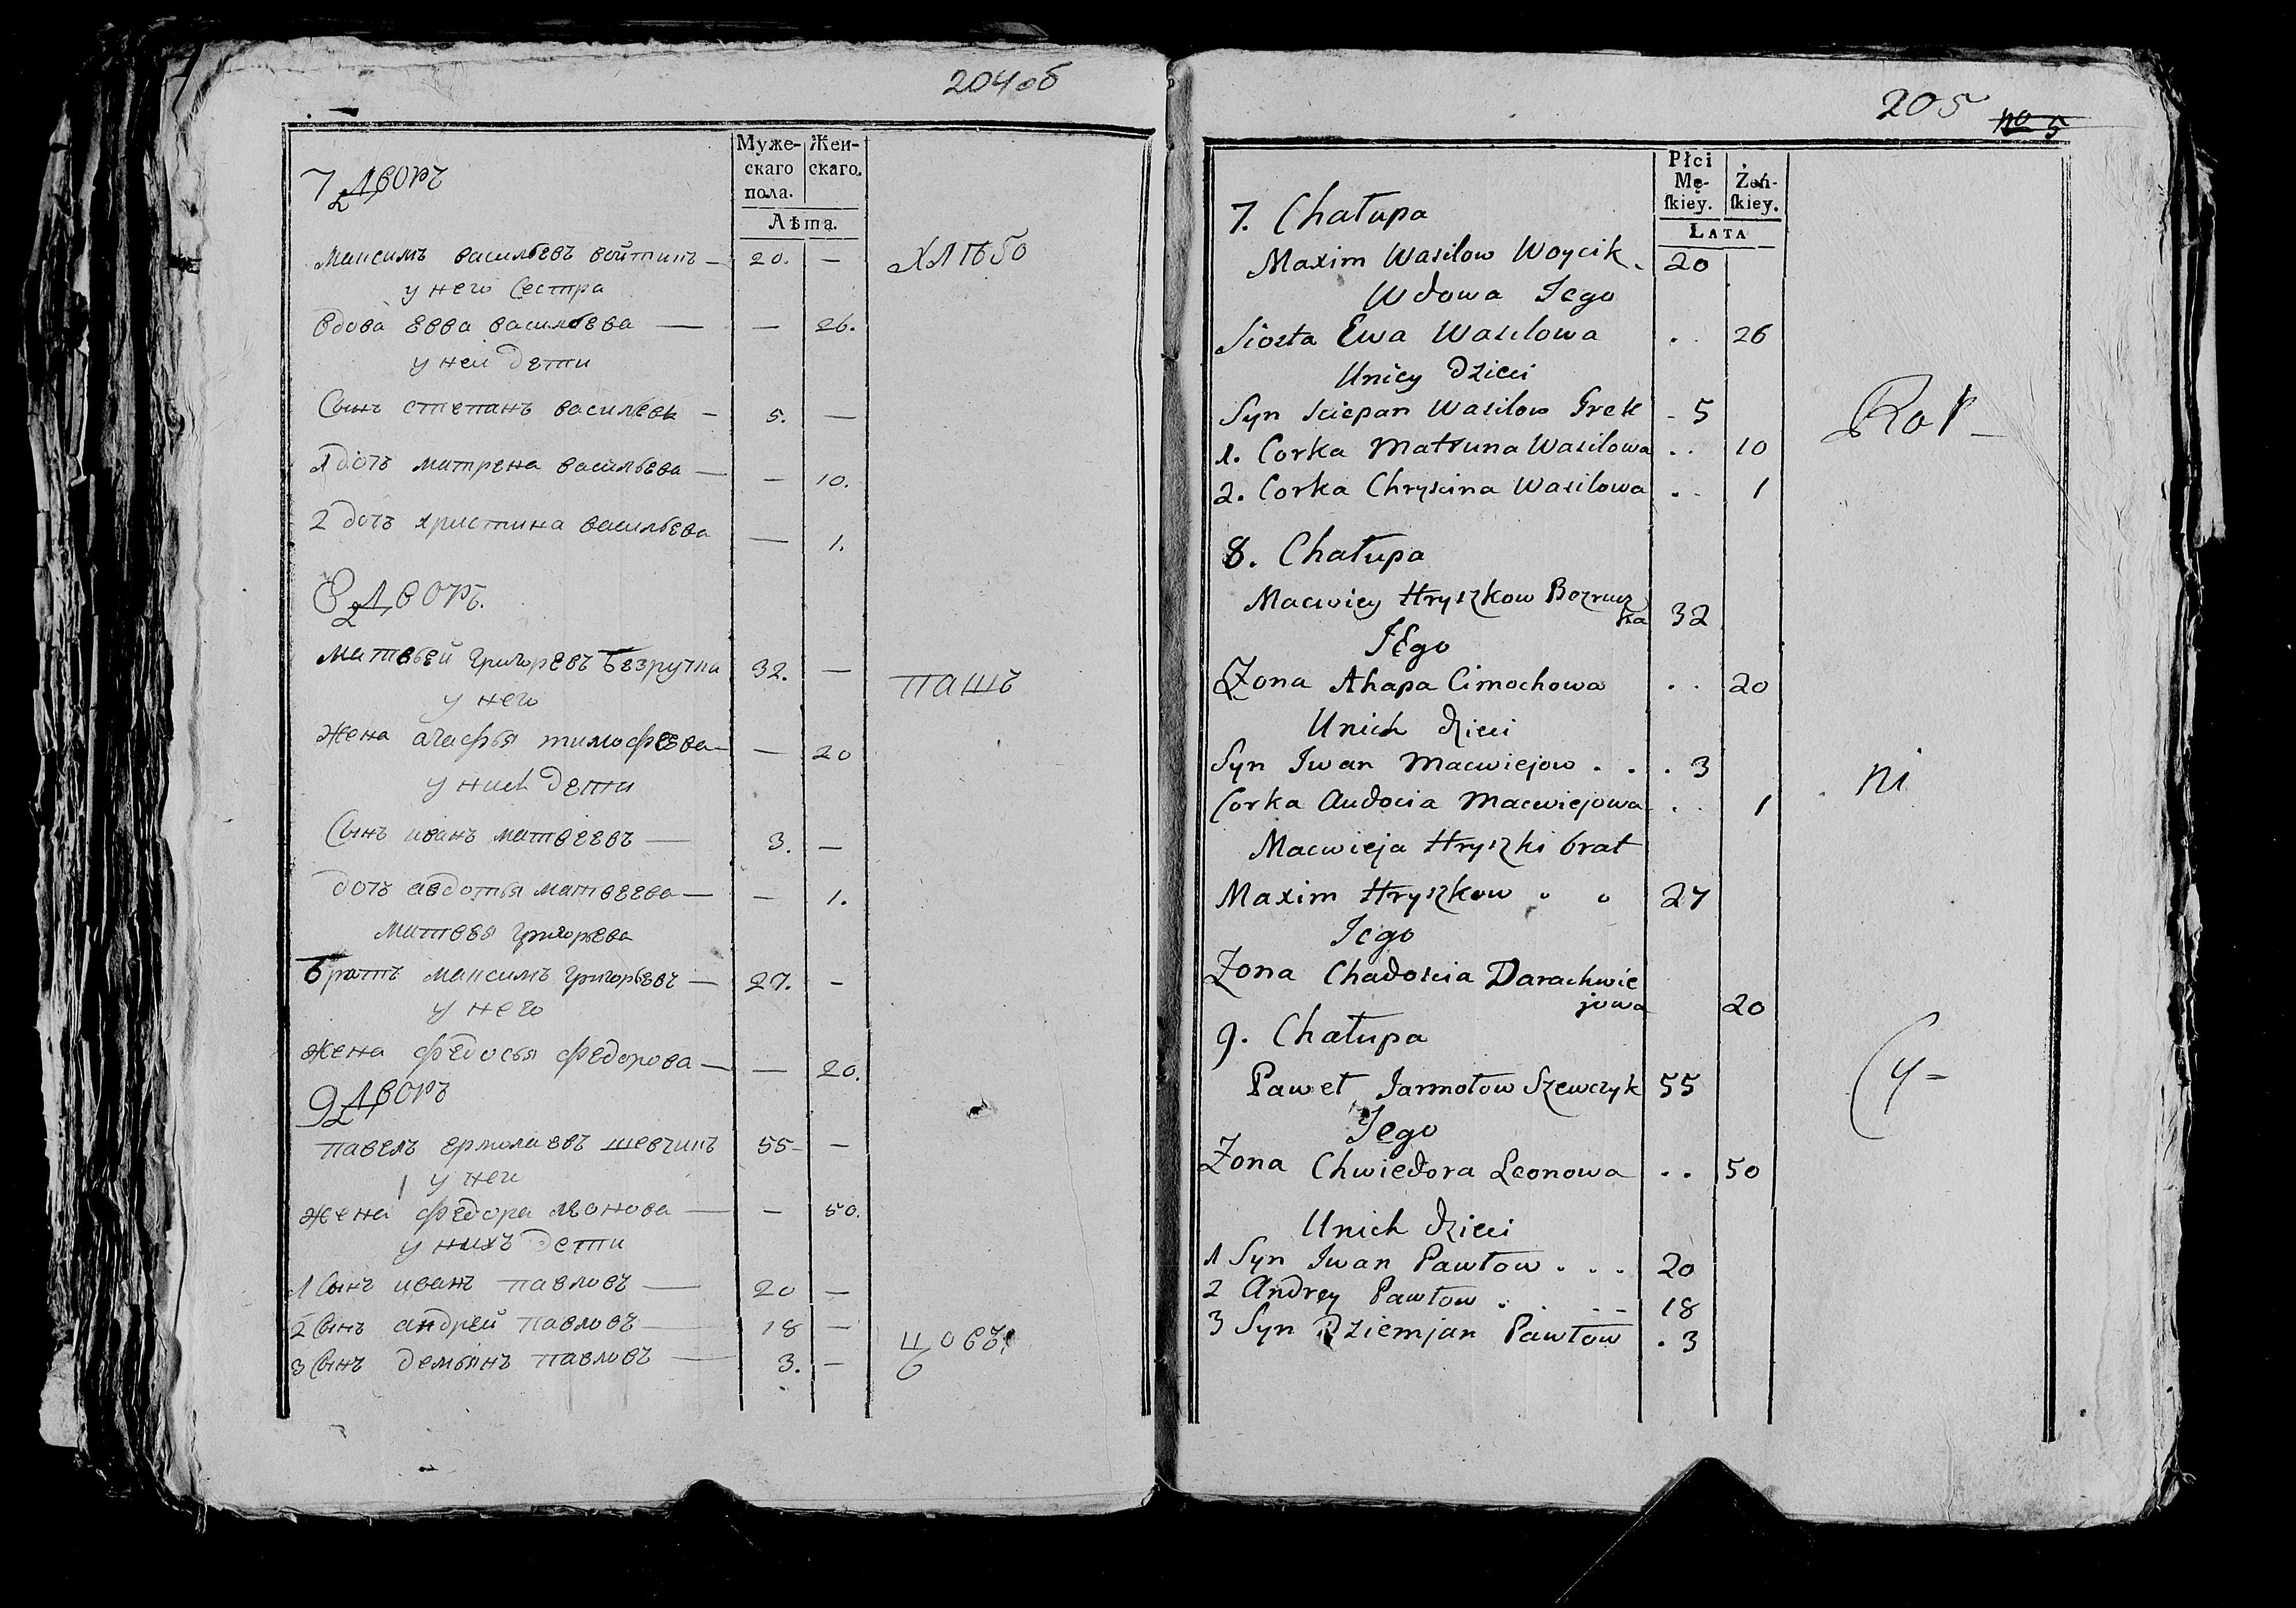 204 об
Муже-
скаго
пола.
Жен-
скаго.
Лѣта.
7 Дворъ
Максимъ васильевъ войтикъ — 20. —
хлѣбо
у него Сестра
Вдова Евва васильева — — 26.
у неи дети
Сынъ степанъ васильевъ — 5. —
1 дочь матрена васильева — — 10.
2 дочь христина васильева — 1.
8 Дворъ.
Матвѣй григоревъ безручка 32. —
пашъ
у него
жена агафья тимофеева — — 20
у них дети
Сынъ иванъ матвеевъ — 3. —
дочь авдотья матвеева — — 1.
матвея григорьева
братъ максимъ григорьевъ — 27. —
у него
жена федосья федорова — — 20.
9 Дворъ
павелъ ермолаевъ шевчикъ 55 — —
у него
жена федора леонова — — 50.
у нихъ дети
1 Сынъ иванъ павловъ — 20 —
2 Сынъ андрей павловъ — 18 —
3 Сынъ демьянъ павловъ — 3. —
цовъ
205
no 5
Płci
Mę-
ſkiey.
Żeń-
ſkiey.
LATA
7. Chałupa
Maxim Wasilow Woycik. 20
Wdowa Jego
Siosta Ewa Wasilowa . . 26
Unicy dzieci
Syn Sciepan Wasilow Grek - 5
1. Corka Matruna Wasilowa . . 10
2. Corka Chryscina Wasilowa . . 1
8. Chałupa
Macwiey Hryszkow Bezrucz
ka 32
JEgo
Zona Ahapa Cimochowa . . 20
Unich dzieci
Syn Iwan Macwiejow . . . 3
Corka Audocia Macwiejowa . . 1
ni
Macwieja Hryszki brat
Maxim Hryszkow . . 27
Jego
Zona Chadoscia Darachwie
jowa 20
9. Chałupa
Paweł Jarmołow Szewczyk 55
Jego
Zona Chwiedora Leonowa . . 50
Unich dzieci
1 Syn Iwan Pawłow . . . 20
2 Andrey Pawłow . . - - 18
3 Syn Dziemjan Pawłow . 3